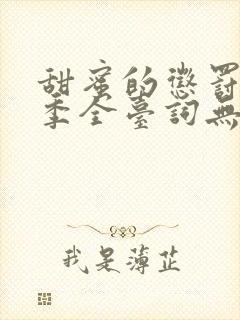 甜蜜的懲罰
季全臺詞無
我是薄芷